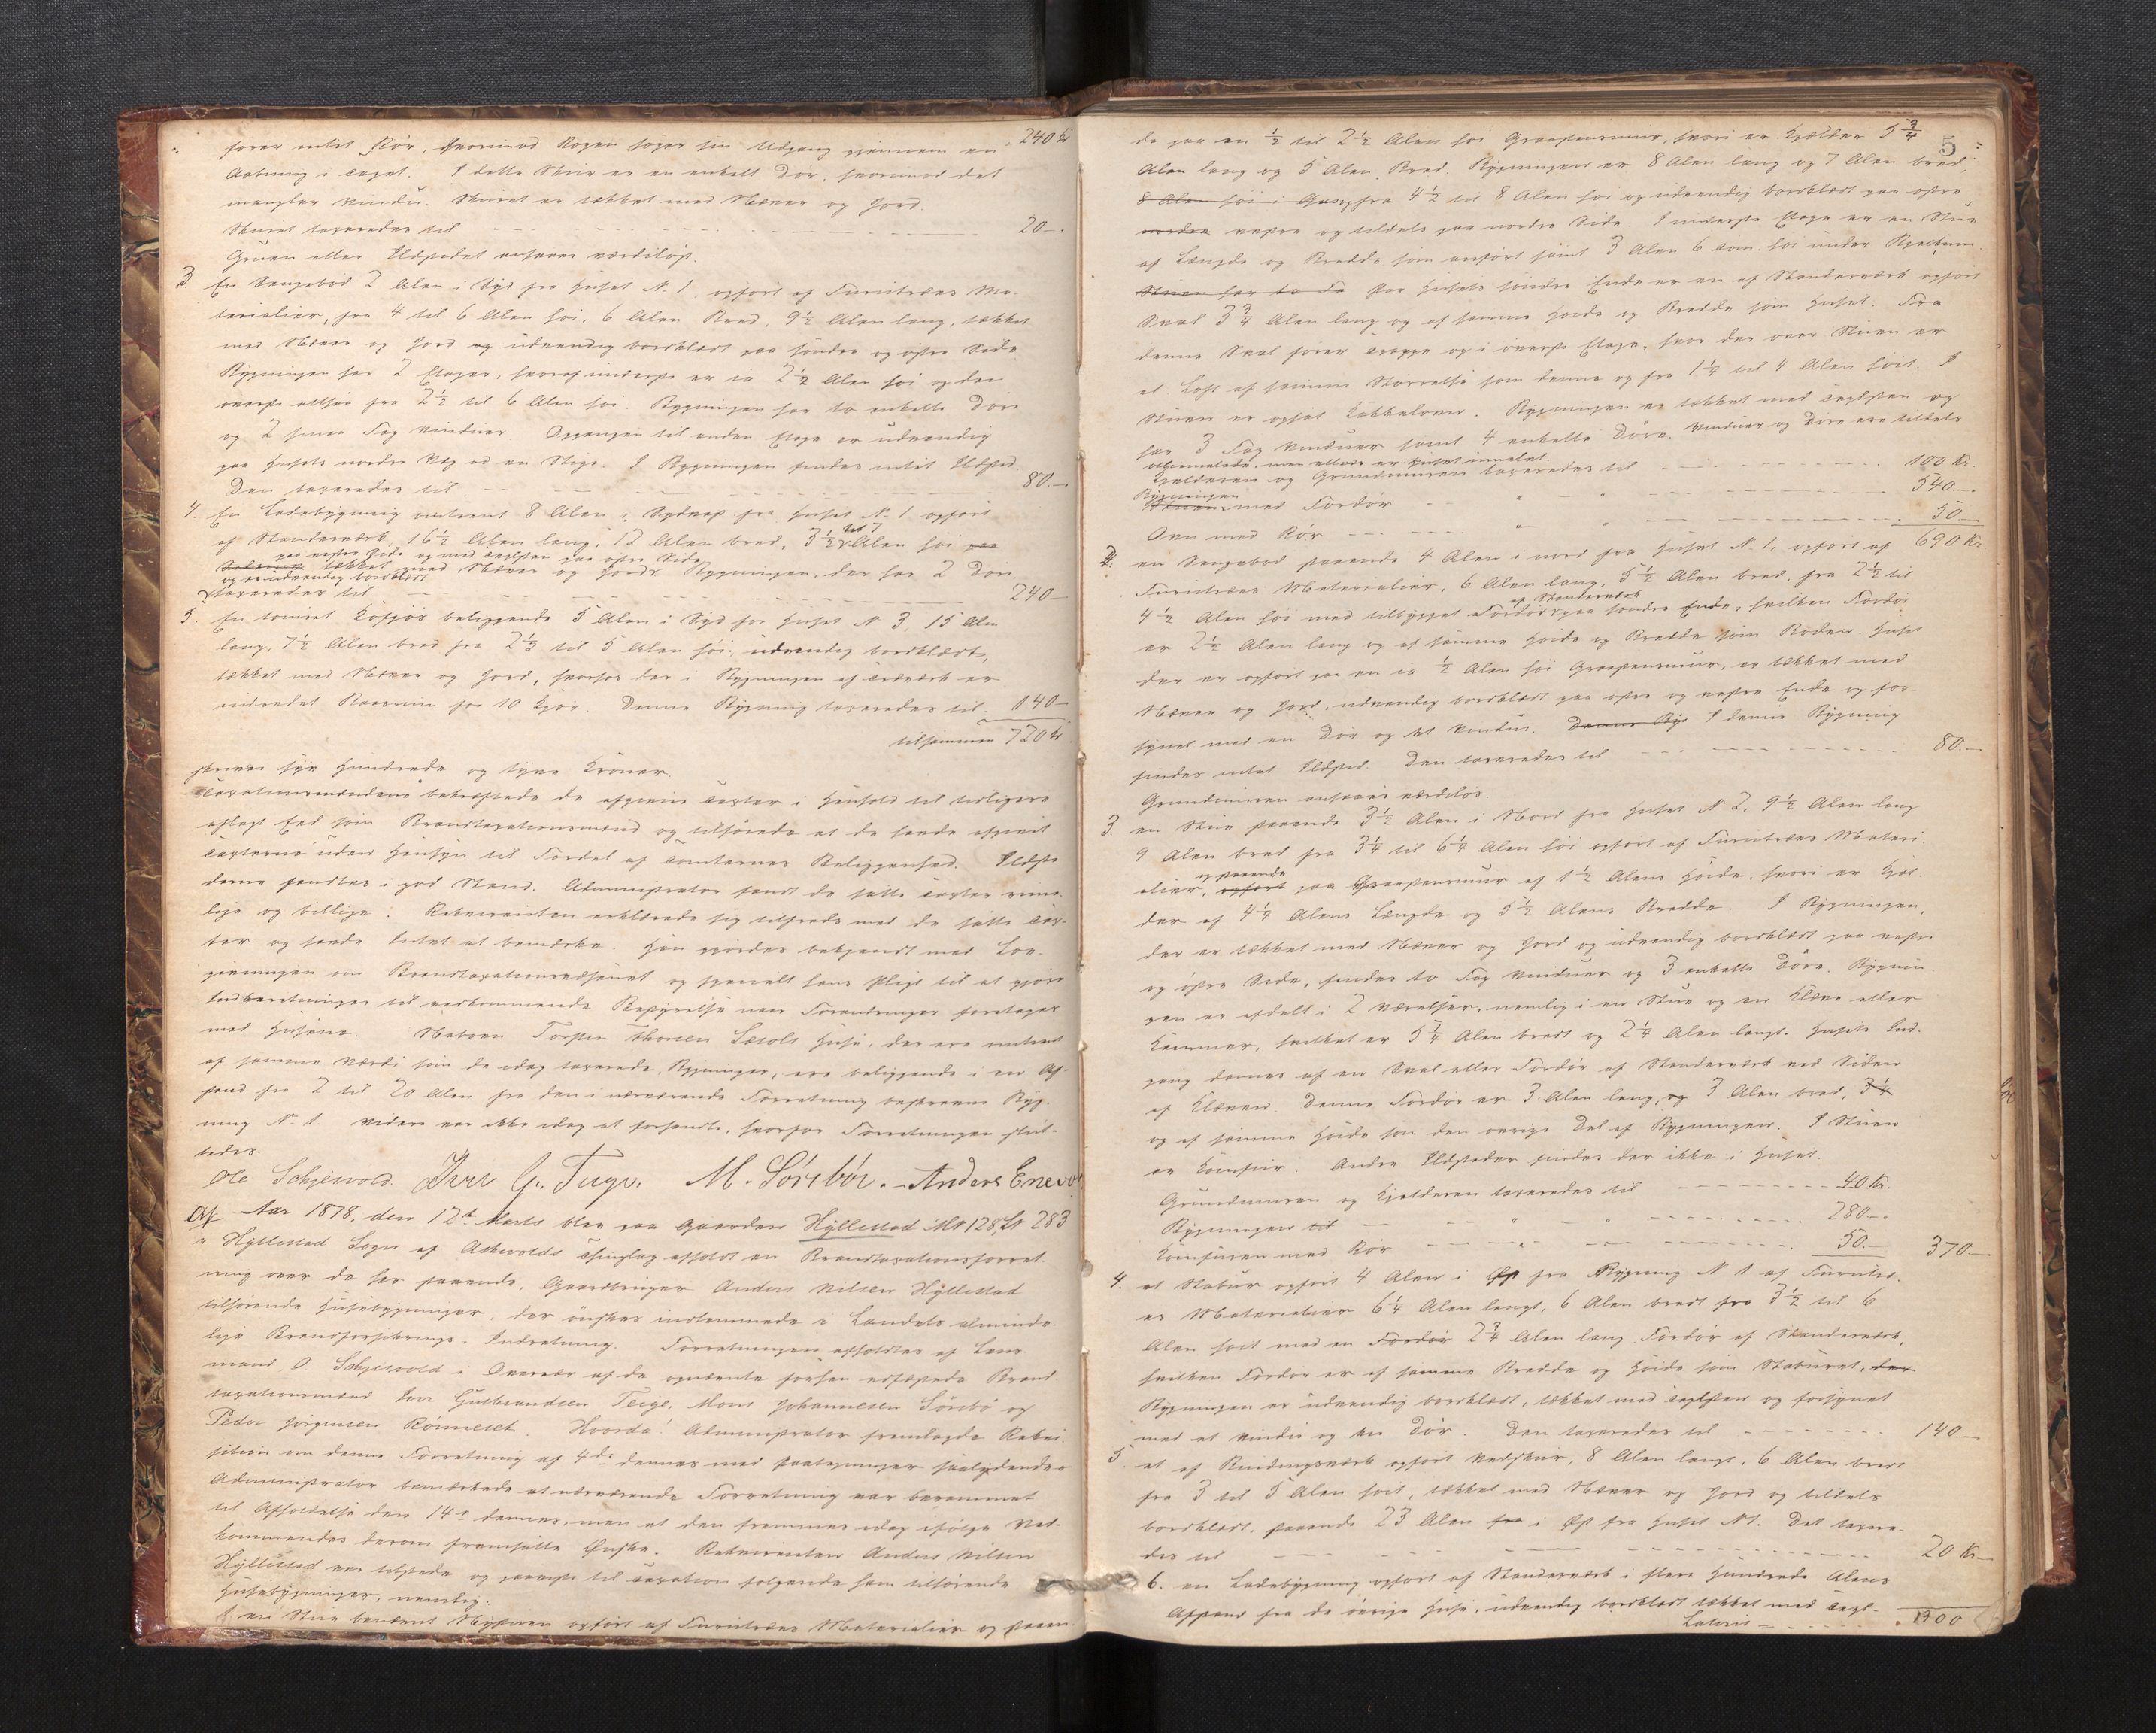 fører intet Rør, hvorimod Røgen søger sin Udgang gjennem en 240 Kr
Aabning i Taget. I dette Skur er en enkelt Dør, hvorimod det
mangler Vindu. Skuret er tækket med Næver og Jord.
Skuret taxeredes til 20 -
Gruen eller Ildstedet ansees værdiløst.
3. En Sengebod 2 Alen i Syd fra Huset No 1 opført af Furutræes Ma-
terialier, fra 4 til 6 Alen høi, 6 Alen Bred, 9 1/2 Alen lang, tækket
med Næver og Jord og udvendig bordklædt paa søndre og østre Side.
Bygningen har 2 Etager, hvoraf underste er ca 2 1/2 Alen høi og den
øverste altsaa fra 2 1/2 til 6 Alen høi. Bygningen har to enkelte Døre
og 2 smaa Fag Vinduer. Opgangen til anden Etage er udvendig
paa Husets nordre Væg ad en Stige. I Bygningen findes intet Ildsted.
Den taxeredes til 80 -
4. En Ladebygning omtrent 8 Alen i Sydvest fra Huset No 1 opført
af Standerværk, 16 1/2 Alen lang, 12 Alen bred, 3 1/2 til 7 Alen høi
tækket med Næver og Jord paa vestre Side og med Teglsten paa østre Side
og er udvendig bordklædt Bygningen, der har 2 Døre
taxeredes til 240 -
5. En tømret Kofjøs beliggende 5 Alen i Syd for Huset No 3, 15 Alen
lang, 7 1/2 Alen bred fra 2 1/2 til 5 Alen høi, udvendig bordklædt,
tækket med Næver og Jord, hvorhos der i Bygningen af Træværk er
indredet Baasrum for 10 Kjør. Denne Bygning taxeredes til 140 -
tilsammen 720 Kr
skriver syv Hundrede og tyve Kroner.
Taxationsmændene bekræftede de afgivne Taxter i Henhold til tidligere
aflagt Eed som Brandtaxationsmænd og tilføiede at de havde afgivet
Taxterne uden Hensyn til Fordel af Tomternes Beliggenhed. Ildste-
derne fandtes i god Stand. Administrator fandt de satte Taxter rime-
lige og billige. Rekvirenten erklærede sig tilfreds med de satte Tax-
ter og havde Intet at bemærke. Han gjordes bekjendt med Lov-
givningen om Brandtaxationsvæsenet og specielt hans Pligt til at gjøre
Indberetninger til vedkommende Bestyrelse naar Forandringer foretages
med Husene. Naboen Torsten Thorsen Huse, der ere omtrent
af samme Værdi som de idag taxerede Bygninger, ere beliggende i en Af-
stand fra 2 til 20 Alen fra den i nærværende Forretning beskrevne Byg-
ning No 1. Videre var ikke idag at forhandle, hvorfor Forretningen slut-
tedes.
Ole Schjervold Iver G. Teige. M. Sörebö. - Anders
Aar 1878, den 12te Marts blev paa Gaarden Hyllestad Mt No 128, Lb 283
i Hyllestad Sogn af Askvolds Thinglag afholdt en Brandtaxationsforret-
ning over de her staaende, Gaardbruger Anders Nilsen Hyllestad
tilhørende Husebygninger, der ønskes indlemmede i Landets alminde-
lige Brandforsikrings-Indretning. Forretningen afholdtes af Lens-
mand O. Schjervold i Overvær af de opnævnte forhen edfæstede Brand-
taxationsmænd Iver Gulbrandsen Teige, Mons Johannesen Sörebö og
Peder Jørgensen Rönneset. Hvorda! Administrator fremlagde Rekvi-
sition om denne Forretning af 4de dennes med Paategninger saalydende
Administrator bemærkede at nærværende Forretning var berammet
til Afholdelse den 14de dennes, men at den fremmes idag ifølge Ved-
kommendes derom fremsatte Ønske. Rekvirenten Anders Nilsen
Hyllestad var tilstede og paaviste til Taxation følgende ham tilhørende
Husebygninger, nemlig:
1. en Stue benævnt Nystuen opført af Furutræes Materialier og staaen-
5
de paa en 1/2 til 2 1/2 Alen høi Graastensmuur, hvori er Kjelder 5 3/4
Alen lang og 5 Alen Bred. Bygningen er 8 Alen lang og 7 Alen bred,
8 Alen høi i og fra 4 1/2 til 8 Alen høi og udvendig bordklædt paa østre
nordre vestre og tildels paa nordre Side. I underste Etage er en Stue
af Længde og Bredde som anført samt 3 Alen 6 Tom. høi under Bjelkerne.
Stuen har to Fa Paa Husets søndre Ende er en af Standerværk opført
Sval 3 3/4 Alen lang og af samme Høide og Bredde som Huset. Fra
denne Sval fører Trappe op i øverste Etage, hvor der over Stuen er
et Loft af samme Størrelse som denne og fra 1 1/4 til 4 Alen høit. I
Stuen er opsat Kakkelovn. Bygningen er tækket med Teglsten og
har 3 Fag Vinduer samt 4 enkelte Døre. Vinduer og Døre ere tildels
oliemalede, men ellers er Huset umalet.
Kjelderen og Grundmuren taxeredes til 100 Kr.
Bygningen med Fordør " " 540 -
Ovn med Rør " " 50 -
690 Kr.
2. en Sengebod staaende 4 Alen i nord fra Huset No 1, opført af
Furutræes Materialier, 6 Alen lang, 5 1/2 Alen bred, fra 2 1/2 til
4 1/2 Alen høi med tilbygget Fordør af Standerværk paa søndre Ende, hvilken Fordør
er 2 1/2 Alen lang og af samme Høide og Bredde som Boden. Huset
der er opført paa en ca 1/2 Alen høi Graastensmuur, er tækket med
Næver og Jord, udvendig bordklædt paa østre og vestre Ende og for-
synet med en Dør og et Vindue. Denne Byg I denne Bygning
findes intet Ildsted. Den taxeredes til 80 -
Grundmuren ansees værdiløs.
3. en Stue staaende 3 1/2 Alen i Nord fra Huset No 2, 9 1/2 Alen lang
9 Alen bred fra 3 1/4 til 6 1/4 Alen høi opført af Furutræes Materi-
alier, opført og staaende paa Graastensmuur af 1 1/2 Alens Høide, hvori er Kjel-
der af 4 1/4 Alens Længde og 5 1/2 Alens Bredde. I Bygningen,
der er tækket med Næver og Jord og udvendig bordklædt paa vestre
og østre Side, findes to Fag Vinduer og 3 enkelte Døre. Bygnin-
gen er afdelt i 2 Værelser, nemlig i en Stue og en Kleve eller
Kammer, hvilket er 5 1/4 Alen bredt og 2 1/4 Alen langt. Husets Ind-
gang dannes af en Sval eller Fordør af Standerværk ved Siden
af Kleven. Denne Fordør er 3 Alen lang, og 3 Alen bred, 3 1/4
og af samme Høide som den øvrige Del af Bygningen. I Stuen
er Komfuir. Andre Ildsteder findes der ikke i Huset.
Grundmuren og Kjelderen taxeredes til 40 Kr.
Bygningen til " " 280 -
Komfuren med Rør " " 50 - 370 -
4. et Stabur opført 4 Alen i Øst fra Bygning No 1 af Furutræ-
es Materialier 6 1/4 Alen langt, 6 Alen bredt fra 3 1/2 til 6
Alen høit med en Fordør 2 3/4 Alen lang Fordør af Standerværk,
hvilken Fordør er af samme Bredde og Høide som Staburet, der
Bygningen er udvendig bordklædt, tækket med Teglsten og forsynet
med et Vindu og en Dør. Den taxeredes til 140 -
5. et af Bindingsværk opført Vedskur, 8 Alen langt, 6 Alen bredt
fra 3 til 5 Alen høit, tækket med Næver og Jord og tildels
bordklædt, staaende 23 Alen fra i Øst fra Huset No 1. Det taxere-
des til 20 Kr -
6. en Ladebygning opført af Standerværk i flere Hundrede Alens
Afstand fra de øvrige Huse, udvendig bordklædt tækket med Tegl-
Lateris 1300